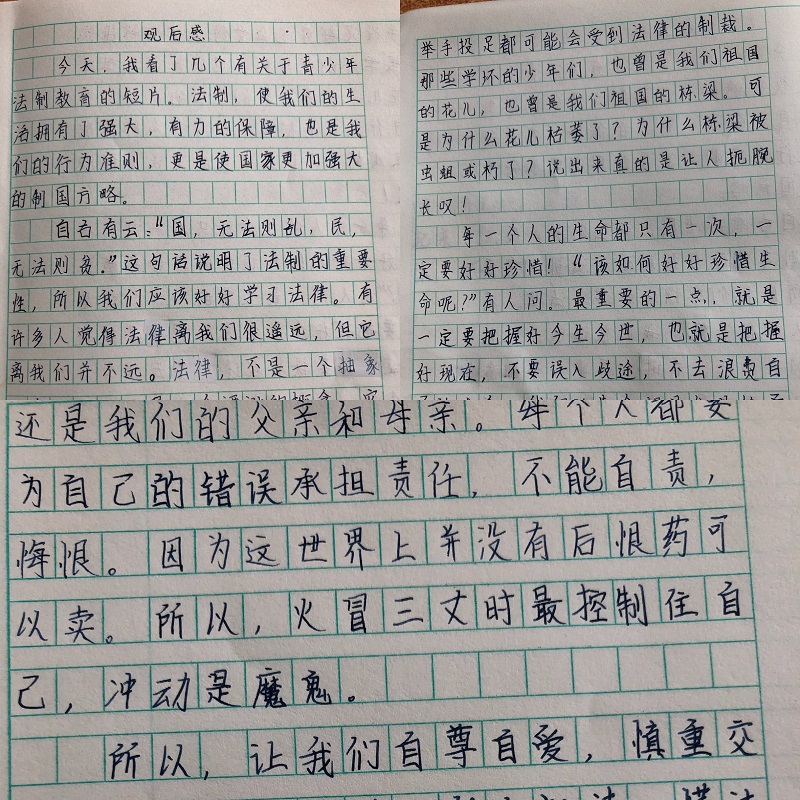 观后感
今天，我看了几个有关于青少年
法制教育的短片。法制，使我们的生
活拥有了强大，有力的保障，也是我
们的行为准则，更是使国家更加强大
的制国方略。
自古有云："国，无法则乱，民，
无法则贫。"这句话说明了法制的重要
性，所以我们应该好好学习法律。有
许多人觉得法律离我们很遥远，但它
离我们并不远。法律，不是一个抽象
举手投足都可能会受到法律的制裁。
那些学坏的少年们，也曾是我们祖国
的花儿，也曾是我们祖国的栋梁。可
是为什么花儿枯萎了？为什么栋梁被
虫蛆或朽了？说出来真的是让人扼腕
长叹！
每一个人的生命都只有一次，一
定要好好珍惜！"该如何好好珍惜生
命呢？"有人问。最重要的一点，就是
一定要把握好今生今世，也就是把握
好现在，不要误入歧途，不去浪费自
还是我们的父亲和母亲。每个人都要
为自己的错误承担责任，不能自责，
悔恨。因为这世界上并没有后恨药可
以卖。所以，火冒三丈时最控制住自
己，冲动是魔鬼。
所以，让我们自尊自爱，慎重交